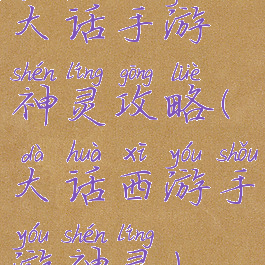 大话手游
shén líng gōng lüè
神灵攻略(
dà huà xī yóu shǒu
大话西游手
yóu shén líng
游神灵)